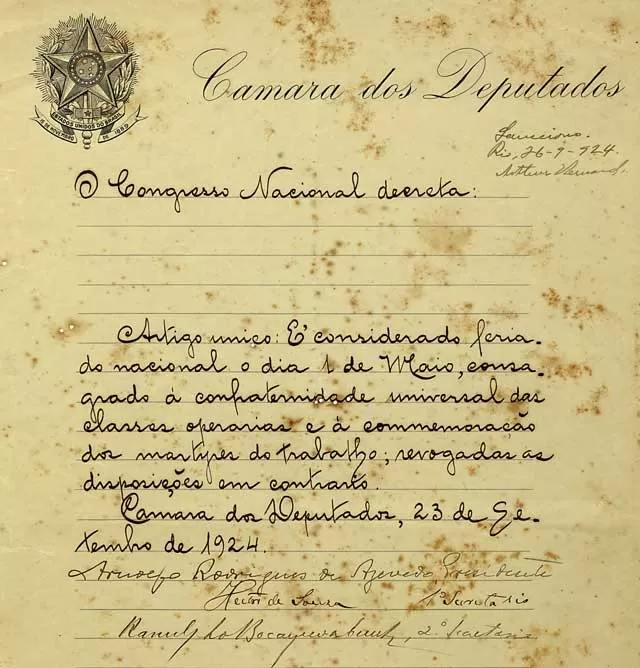 Camara dos Deputados
ESTADOS UNIDOS DO BRASIL
15 DE NOVEMBRO DE 1889
Sancciono.
Rio, 26-9-924.
Arthur Bernardes.
O Congresso Nacional decreta:
Artigo unico: E' considerado feria-
do nacional o dia 1 de Maio, consa-
grado á confraternidade universal das
classes operarias e á commemoração
dos martyres do trabalho; revogadas as
disposições em contrario.
Camara dos Deputados, 23 de Se-
tembro de 1924.
Arnolfo Rodrigues de Azevedo Presidente
Heitor de Souza 1º Secretario
Ranulpho Bocayuva Cunha, 2º Secretario